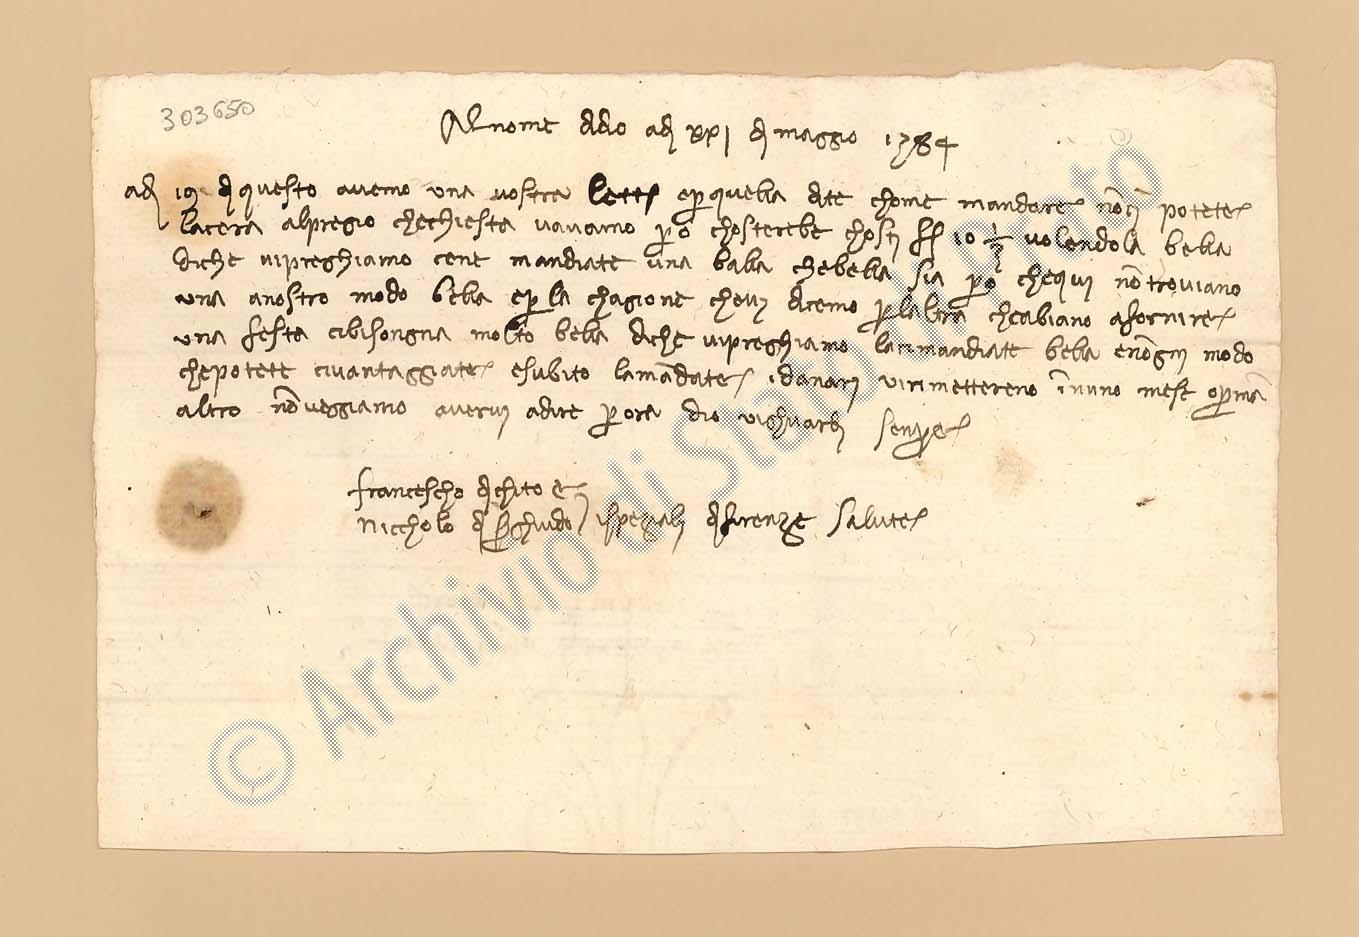 303650
Al nome di dio adi xxj di maggio 1384
adi 19 di questo avemo una vostra lett e per quella dite chome mandare non ci potete
la cera al pregio che chiesta vavamo però chosterebe chosti ff 10 1/2 volendola bella
diche vi preghiamo cene mandiate una balla che bella sia però che qui non troviano
una a nostro modo bella e per la chagione chevi dicemo per laltra che abiano a fornire
una festa cibisongna molto bella diche vi preghiamo la ci mandiate bella e non ogni modo
che potete ci vantaggiate e subito la mandate i danari vi rimettereno in uno mese o prima
altro non veggiamo avervi a dire per ora dio vi ghuardi senpre
francescho di chito e
Niccholo di ser ghuido ispeziali di firenze salute
© Archivio di Stato di Prato